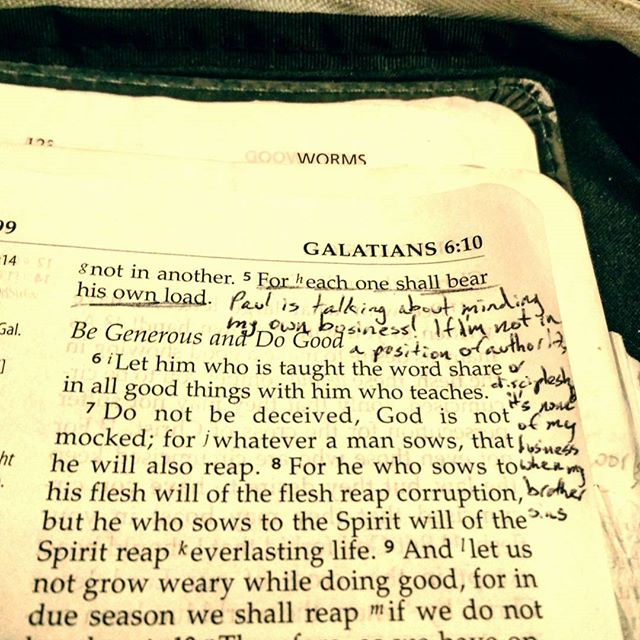 123
GOODWORMS
99
GALATIANS 6:10
:14
g not in another. 5 For h each one shall bear
his own load. Paul is talking about minding
my own business! If I'm not in
Gal.
Be Generous and Do Good a position of authority
6 i Let him who is taught the word share or
in all good things with him who teaches. disciplesh
7 Do not be deceived, God is not it's none
mocked; for j whatever a man sows, that of my
ht
he will also reap. 8 For he who sows to business
his flesh will of the flesh reap corruption, when my
but he who sows to the Spirit will of the brother
Spirit reap k everlasting life. 9 And l let us sins
not grow weary while doing good, for in
due season we shall reap m if we do not